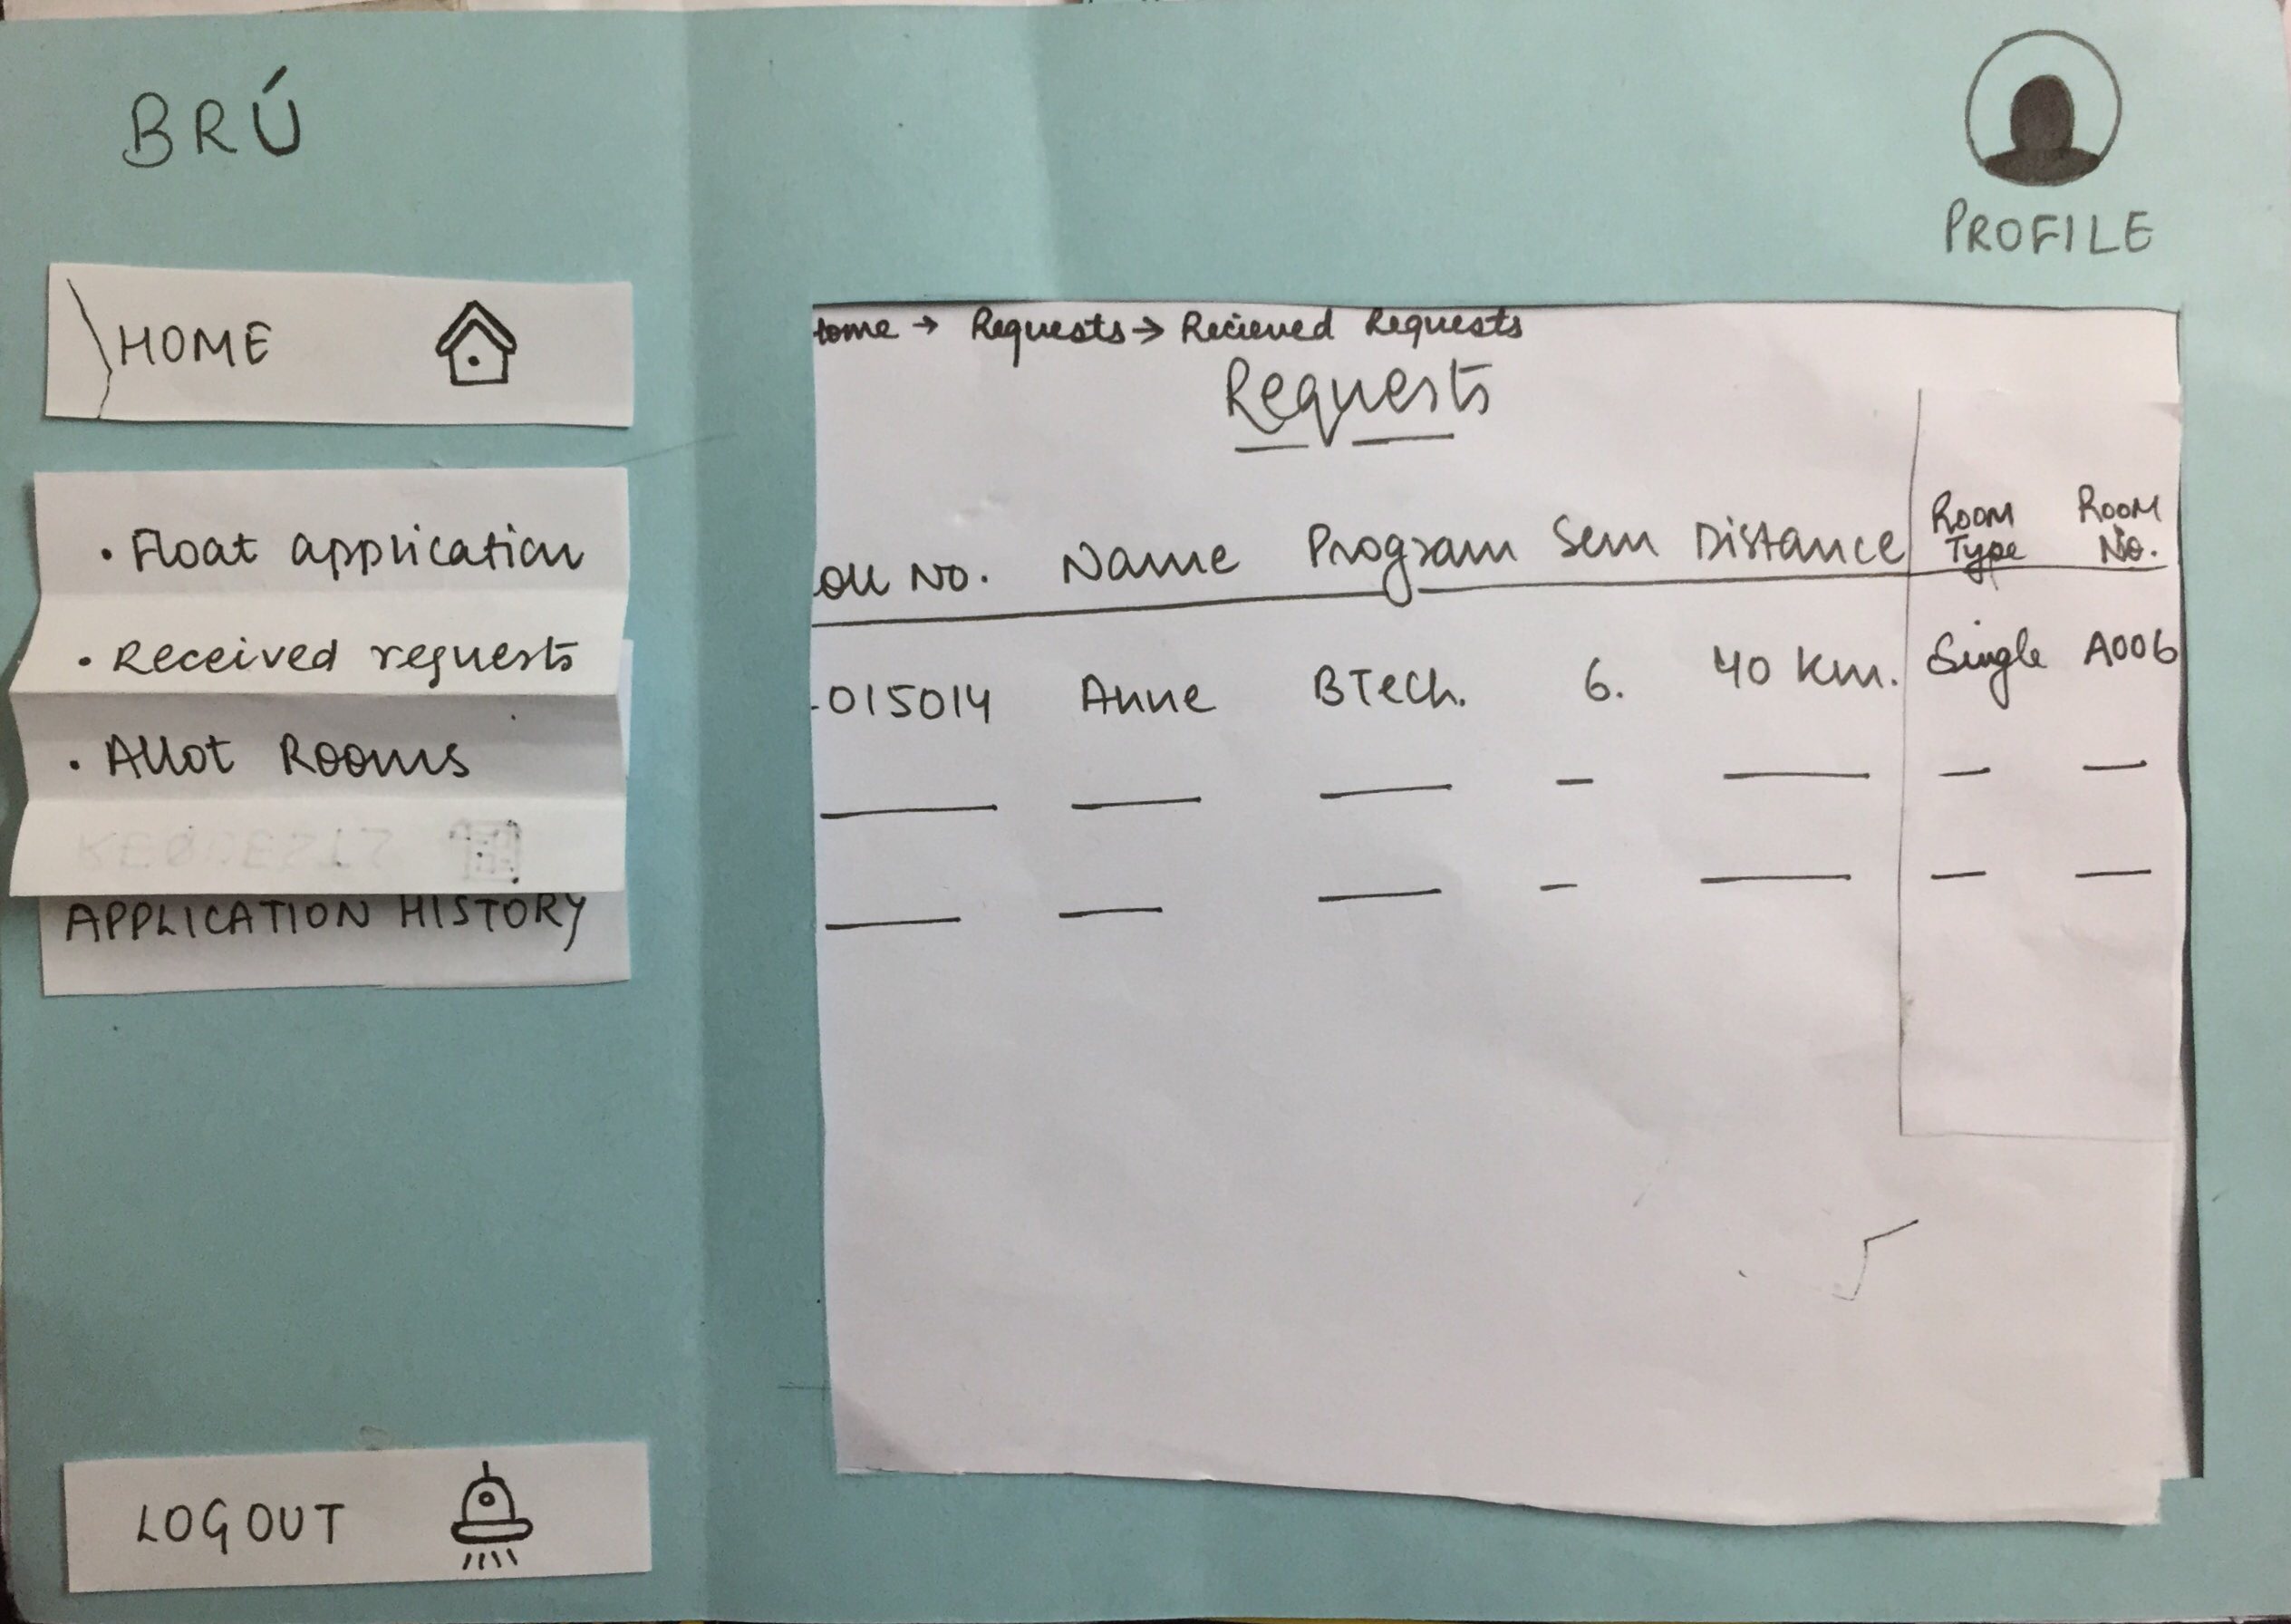 BRÚ
PROFILE
HOME
• Float application
• Received requests
• Allot Rooms
APPLICATION HISTORY
LOGOUT
ome → Requests → Recieved Requests
Requests
oll No. Name Program Sem Distance Room Type Room No.
015014 Anne BTech. 6. 40 Km. Single A006